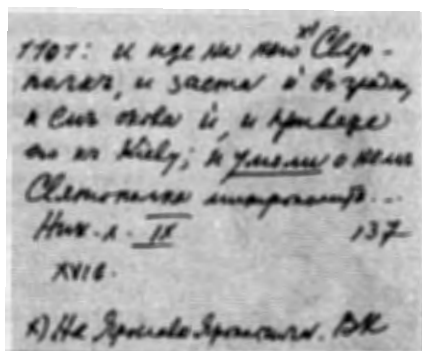 1101: и иде на него х) Свято-
полкъ, и заста й во граде,
и емъ окова й, и приведе
его къ Киеву; и умоли о немъ
Святополка митрополитъ...
Ник. л. IX 137
XVI в.
х) На Ярослава Ярополча. ВК